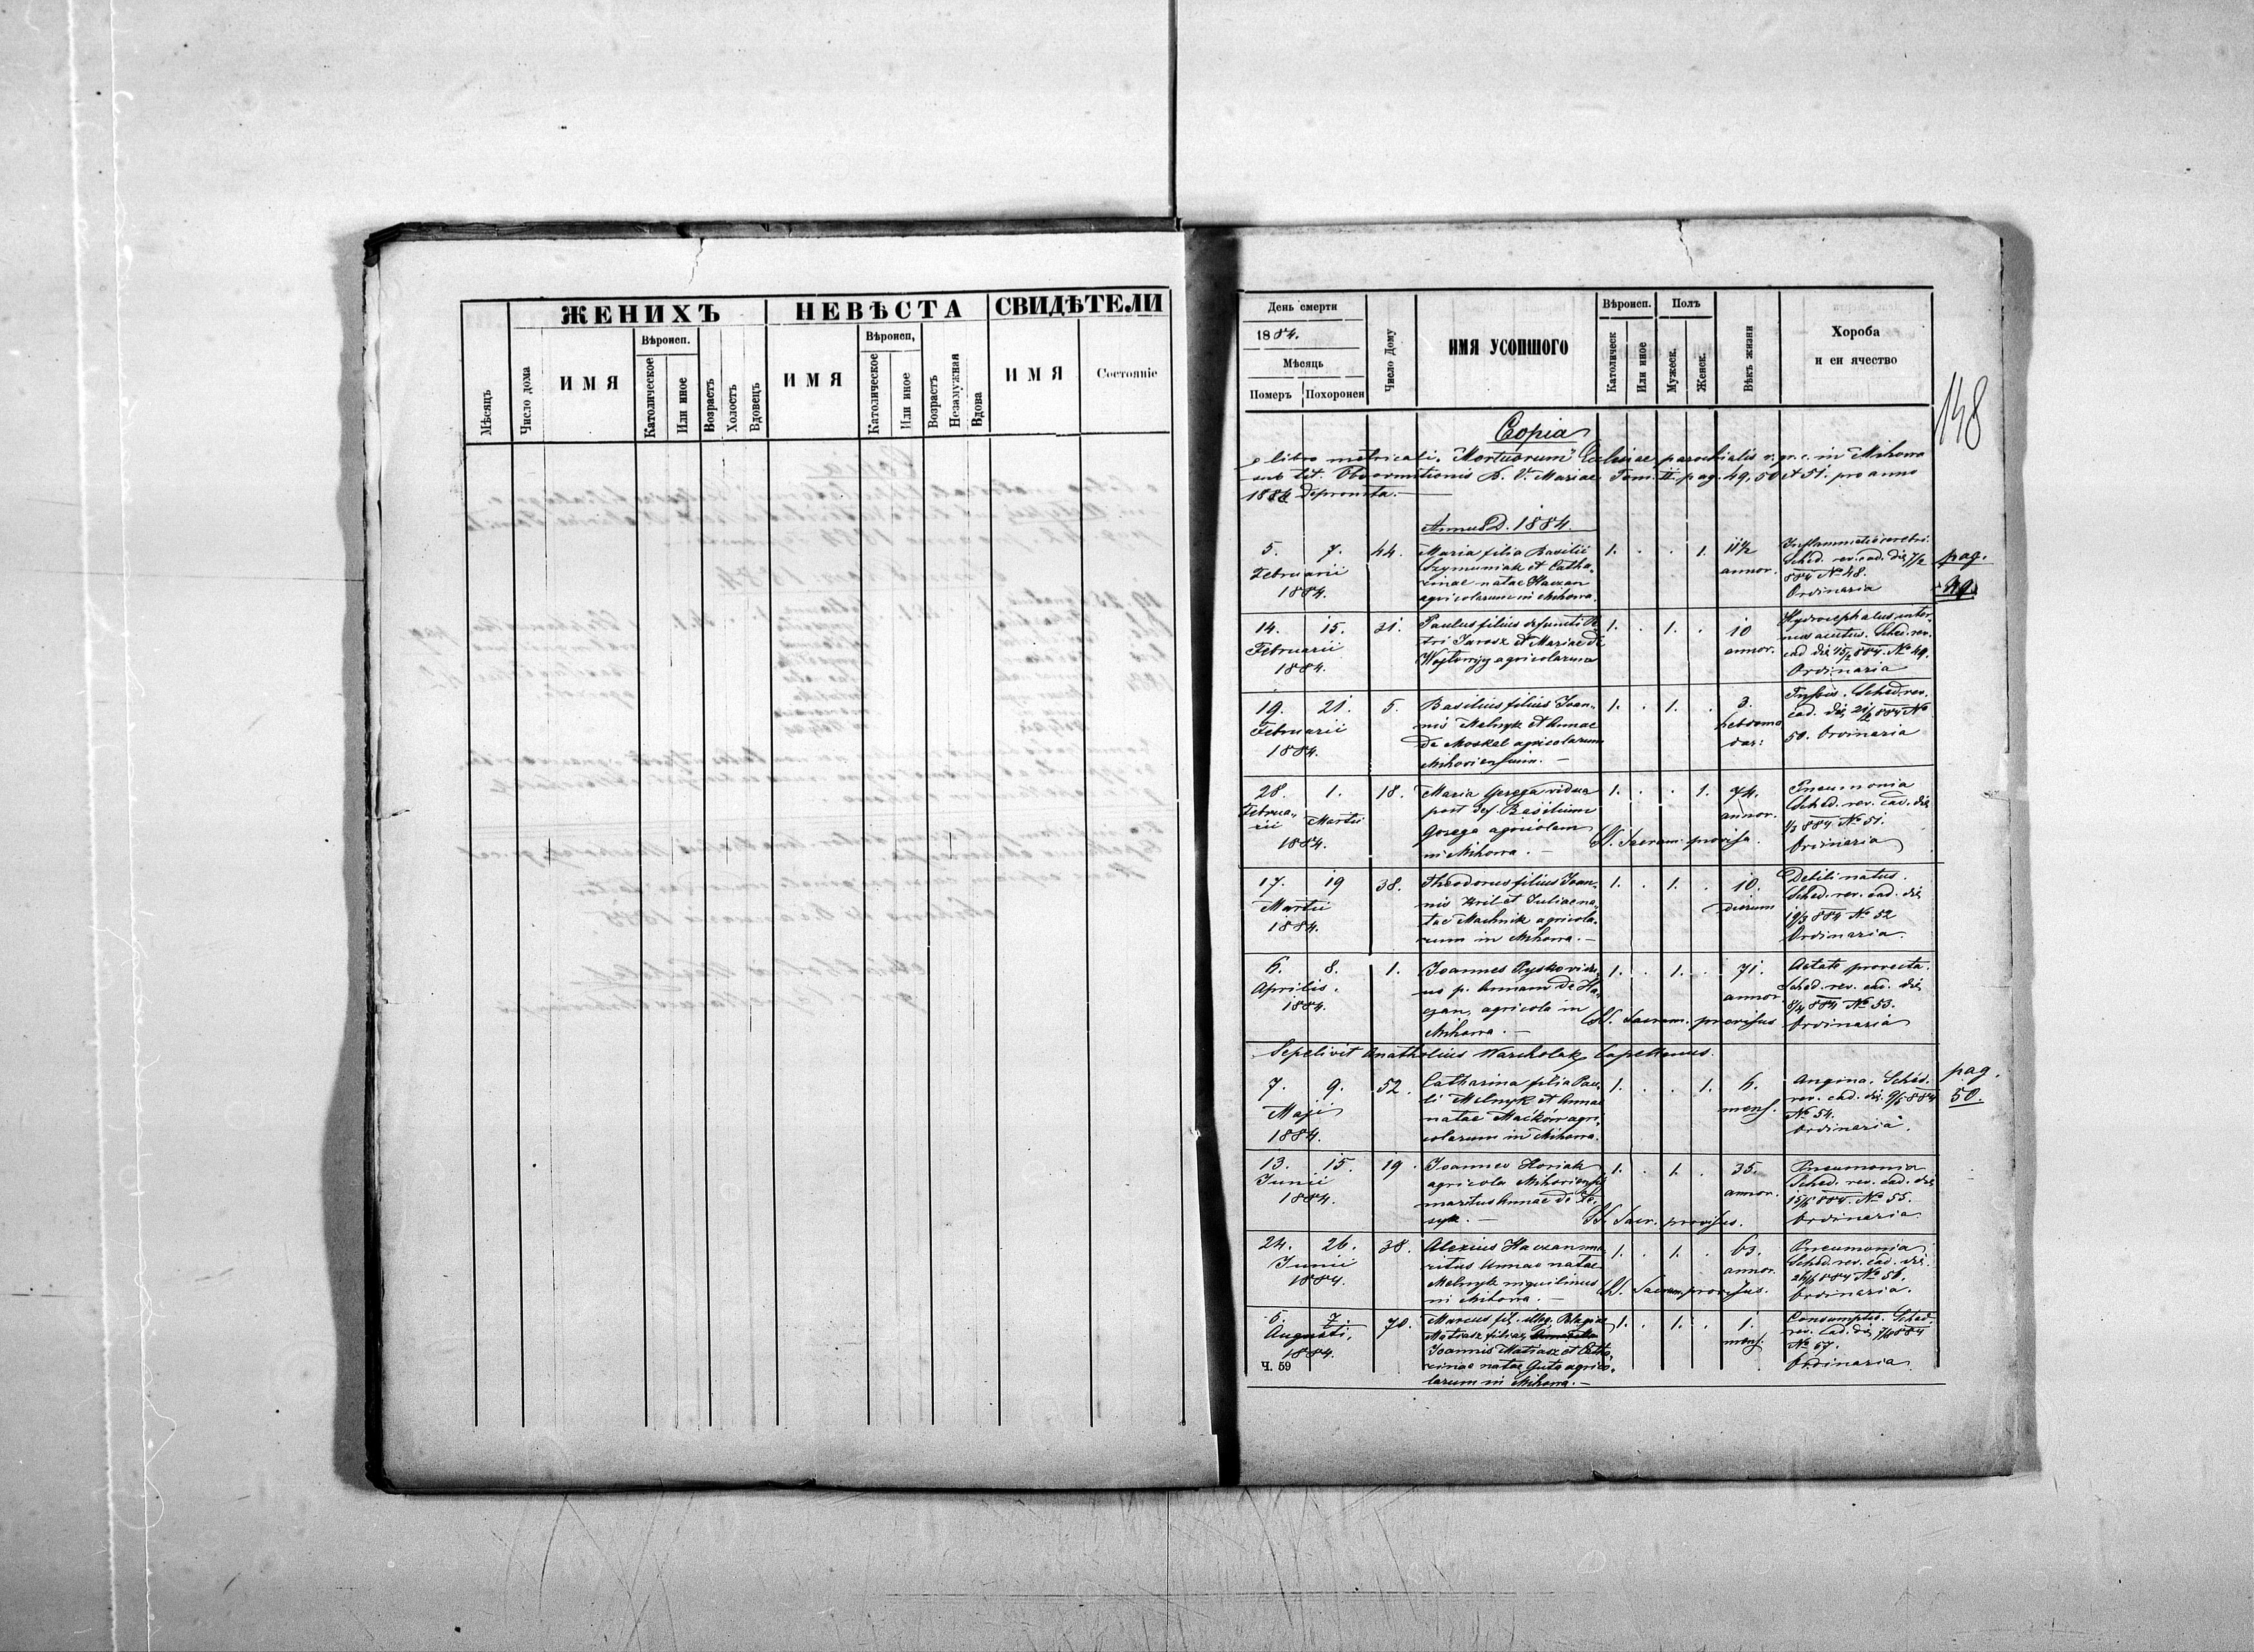 ЖЕНИХЪ НЕВѢСТА СВИДѢТЕЛИ
Мѣсяцъ
Число дома
ИМЯ
Вѣроисп.
Католическое
Или иное
Возрастъ
Холостъ
Вдовецъ
ИМЯ
Вѣроисп,
Католическое
Или иное
Возрастъ
Незамужная
Вдова
ИМЯ
Состояніе
День смерти
1884.
Мѣсяць
Померъ Похоронен
Число Дому
ИМЯ УСОПШОГО
Вѣроисп.
Католическ
Или иное
Полъ
Мужеск.
Женск.
Вѣкъ жизни
Хороба
и еи ячество
148
Copia
e libro metricali "Mortuorum" Ecclesiae parochialis r. gr. c. in Mihowa
sub tit. Obdormitionis B. V. Mariae Tom. II pag. 49, 50 et 51. pro anno
1884 depromta.
Annus D. 1884.
5. 7. Februarii 1884.
44.
Maria filia Basilii
Szymuniak et Catha-
rinae natae Haczan
agricolarum in Mihowa.
1. . . 1.
11½ annor.
Inflammatio cerebri.
Sched. rev. cad. die 7/2
884 № 48.
Ordinaria
pag.
49.
14. 15. Februarii 1884.
31.
Paulus filius defuncti Pe-
tri Jarosz et Mariae de
agricolarum
1. . 1. .
10 annor.
Hydrocephalus inter-
nus acutus. Sched. rev.
cad die 15/2 884. № 49.
Ordinaria
19. 21. Februarii 1884.
5.
Basilius filius Joan-
nis Melnyk et Annae
de Moskal agricolarum
Mihoviensium. —
1. . 1. .
3. hebdoma
dar:
Sched. rev.
cad. die 21/2 884 №
50. Ordinaria
28. Februa-
rii 1. Martii 1884.
18.
Maria Gozega vidua
post def. Basilium
Gozega agricolam
in Mihowa. —
1. . . 1.
74. annor.
SS. Sacram. provisa.
Pneumonia
Sched. rev. cad. die
1/3 884 № 51.
Ordinaria
17. 19 Martii 1884.
38.
Theodorus filius Joan-
nis Kril et Juliae na-
tae Machnik agricola-
rum in Mihowa. —
1. . 1. .
10. dierum
Debili natus.
Sched. rev. cad. die
19/3 884 № 52
Ordinaria.
6. 8. Aprilis. 1884.
1.
Joannes
p. Annam de Ha-
czan, agricola in
Mihowa. —
1. . 1. .
71. annor.
SS. Sacram. provisus
Aetate provecta.
Sched. rev. cad. die
8/4 884 № 53.
Ordinaria
Sepelivit Anatholius Warcholak Capellanus.
7. 9. Maji 1884.
52.
Catharina filia Pau-
li Melnyk et Annae
natae Maćków agri-
colarum in Mihowa.
1. . . 1.
6. mens.
Angina. Sched.
rev. cad. die 9/5 884
№ 54.
Ordinaria.
pag.
50.
13. 15. Junii 1884.
19.
Joannes Horiak
agricola Mihoviensis
maritus Annae de
1. . 1. .
35. annor.
SS. Sacr. provisus.
Pneumonia
Sched. rev. cad. die
15/6 884. № 55.
Ordinaria.
24. 26. Junii 1884.
38.
Alexius Haczan ma-
ritus Annae natae
Melnyk inquilinus
in Mihowa. —
1. . 1. .
63. annor.
SS. Sacram. provisus.
Pneumonia
Sched. rev. cad. die
26/6 884 № 56.
Ordinaria.
5. 7. Augusti, 1884.
70.
Marcus fil. illeg. Pelagiae
Matiasz filiae
Joannis Matiasz et Catha-
rinae natae Guta agrico-
larum in Mihowa. —
1. . 1. .
1. mens.
Consumptio. Sched.
rev. cad. die 7/8 884
№ 57.
Ordinaria
Ч. 59